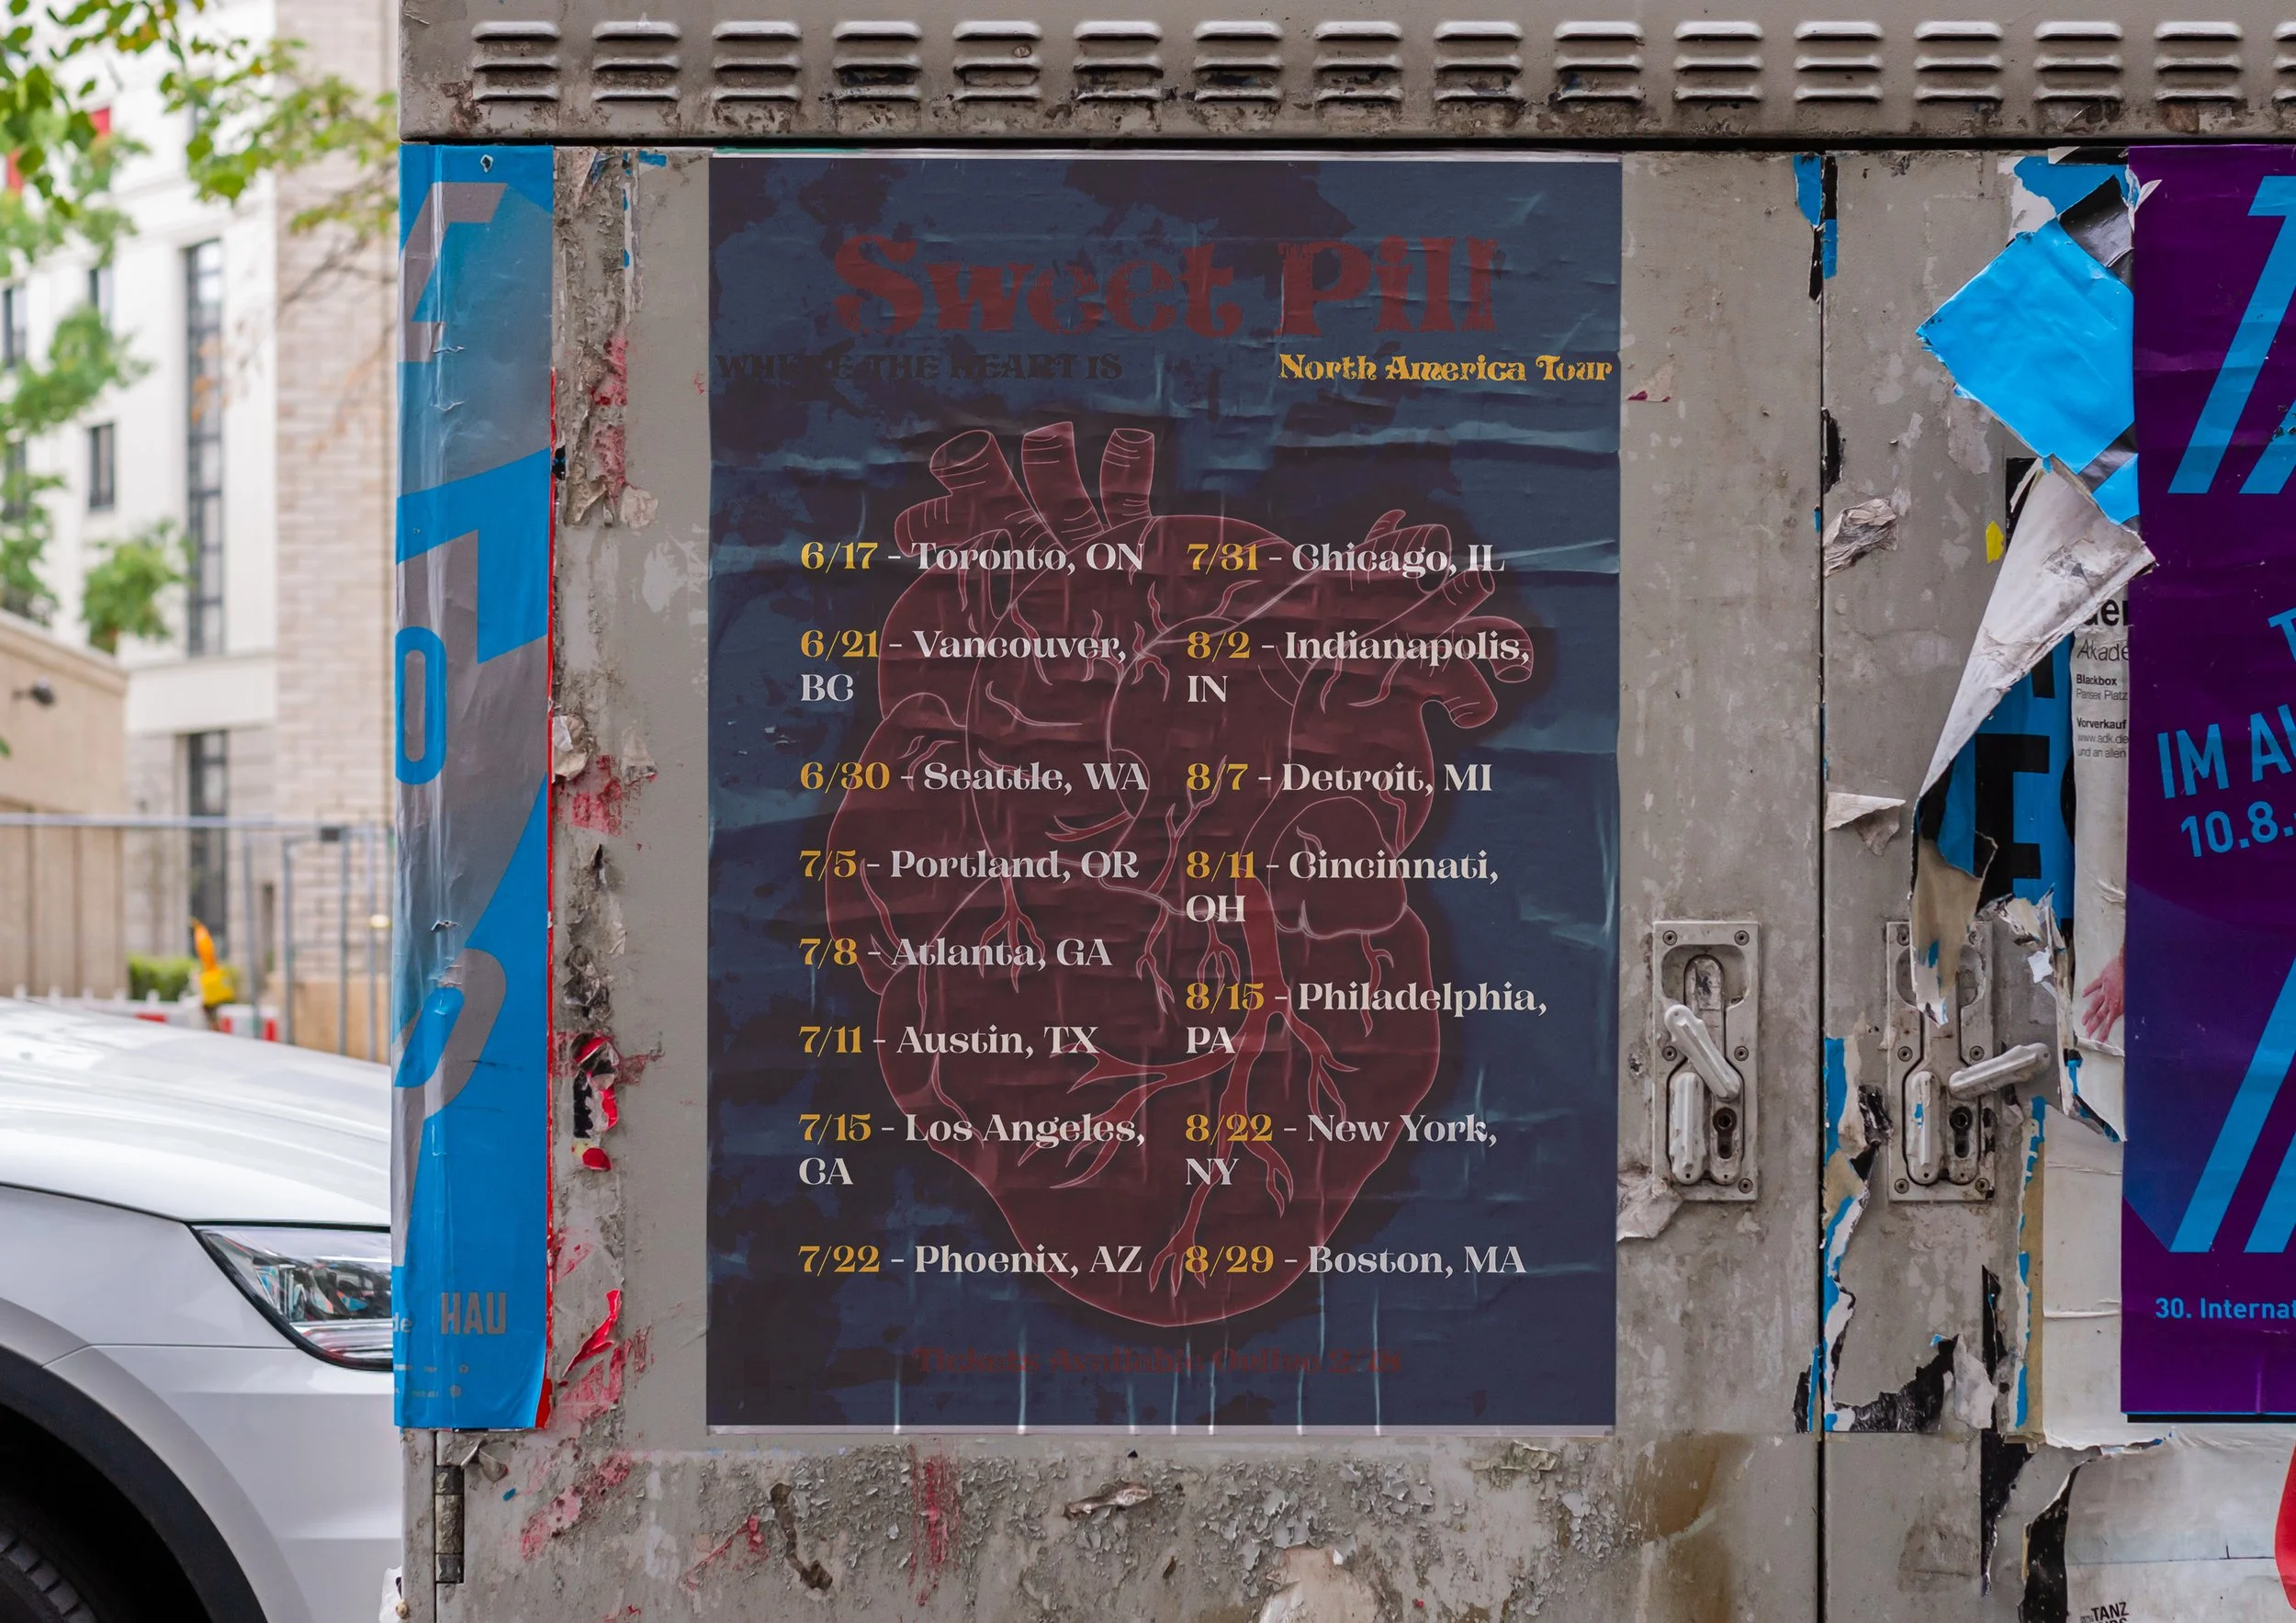 Sweet Pill
WHERE THE HEART IS
North America Tour
6/17 - Toronto, ON
6/21 - Vancouver,
BC
6/30 - Seattle, WA
7/5 - Portland, OR
7/8 - Atlanta, GA
7/11 - Austin, TX
7/15 - Los Angeles,
CA
7/22 - Phoenix, AZ
7/31 - Chicago, IL
8/2 - Indianapolis,
IN
8/7 - Detroit, MI
8/11 - Cincinnati,
OH
8/15 - Philadelphia,
PA
8/22 - New York,
NY
8/29 - Boston, MA
Tickets Available Online
HAU
Akade
Blackbox
Pariser Platz
Vorverkauf
www.adk.de
und an allen
IM AU
10.8.
30. Internat
TANZ